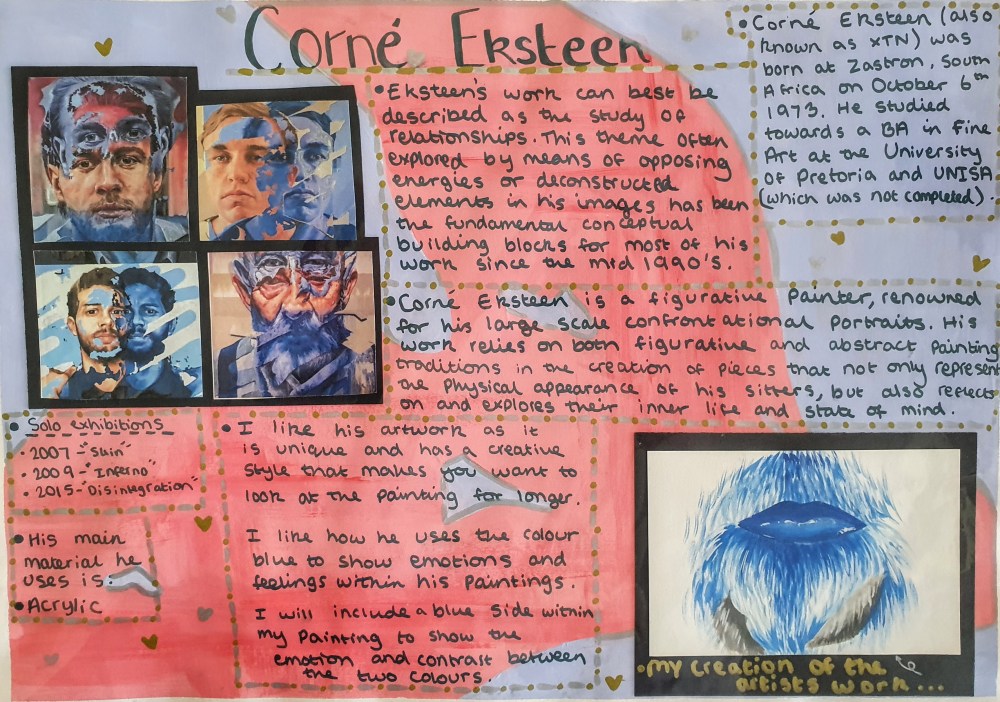 Corné Eksteen
• Corné Eksteen (also
known as xTN) was
born at Zastron, South
Africa on October 6th
1973. He studied
towards a BA in Fine
Art at the University
of Pretoria and UNISA
(which was not completed).
• Eksteen's work can best be
described as the study of
relationships. This theme often
explored by means of opposing
energies or deconstructed
elements in his images has been
the fundamental conceptual
building blocks for most of his
work since the mid 1990's.
• Corné Eksteen is a figurative Painter, renowned
for his large scale confrontational portraits. His
work relies on both figurative and abstract painting
traditions in the creation of pieces that not only represent
the physical appearance of his sitters, but also reflects
on and explores their inner life and state of mind.
• Solo exhibitions
• 2007 - "Skin"
• 2009 - "Inferno"
• 2015 - "Disintegration"
• His main
material he
uses is
• Acrylic
• I like his artwork as it
is unique and has a creative
style that makes you want to
look at the painting for longer.
I like how he uses the colour
blue to show emotions and
feelings within his paintings.
I will include a blue side within
my painting to show the
emotion and contrast between
the two colours.
• My creation of the
artists work...